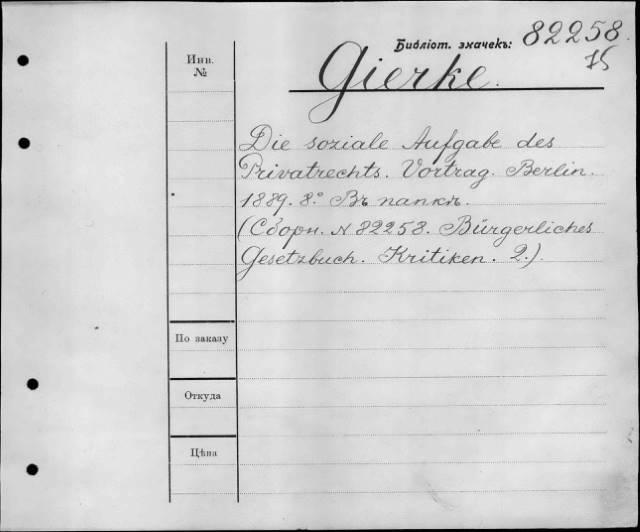 Библіот. значекъ: 82258.
15
Инв. №
Gierke.
Die soziale Aufgabe des
Privatrechts. Vortrag. Berlin.
1889. 8.° Въ папкѣ.
(Сборн. № 82258. Bürgerliches
Gesetzbuch. Kritiken. 2.)
По заказу
Откуда
Цѣна